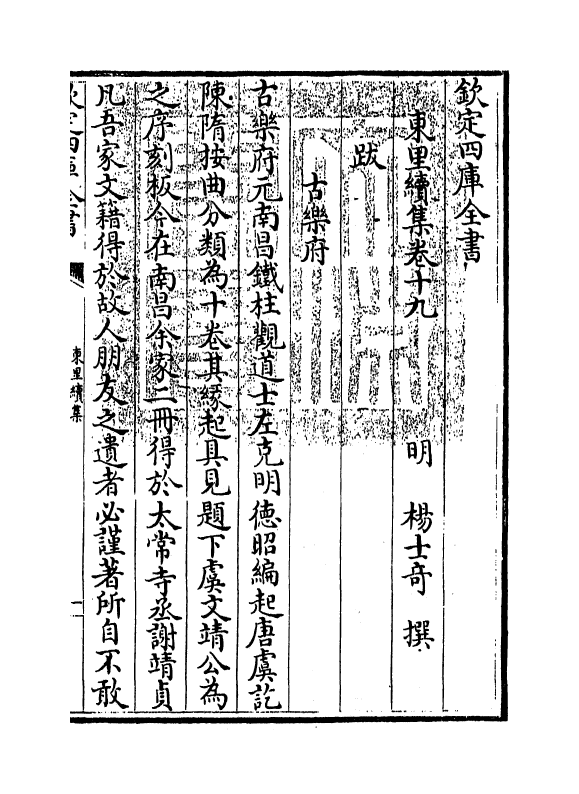 欽定四庫全書
東里續集卷十九
明 楊士奇 撰
跋
古樂府
古樂府元南昌鐵柱觀道士左克明德昭編起唐虞訖
陳隋按曲分類為十卷其緣起具見題下虞文靖公為
之序刻板今在南昌余家二冊得於太常寺丞謝靖貞
凡吾家文籍得於故人朋友之遺者必謹著所自不敢
欽定四庫全書
東里續集
一